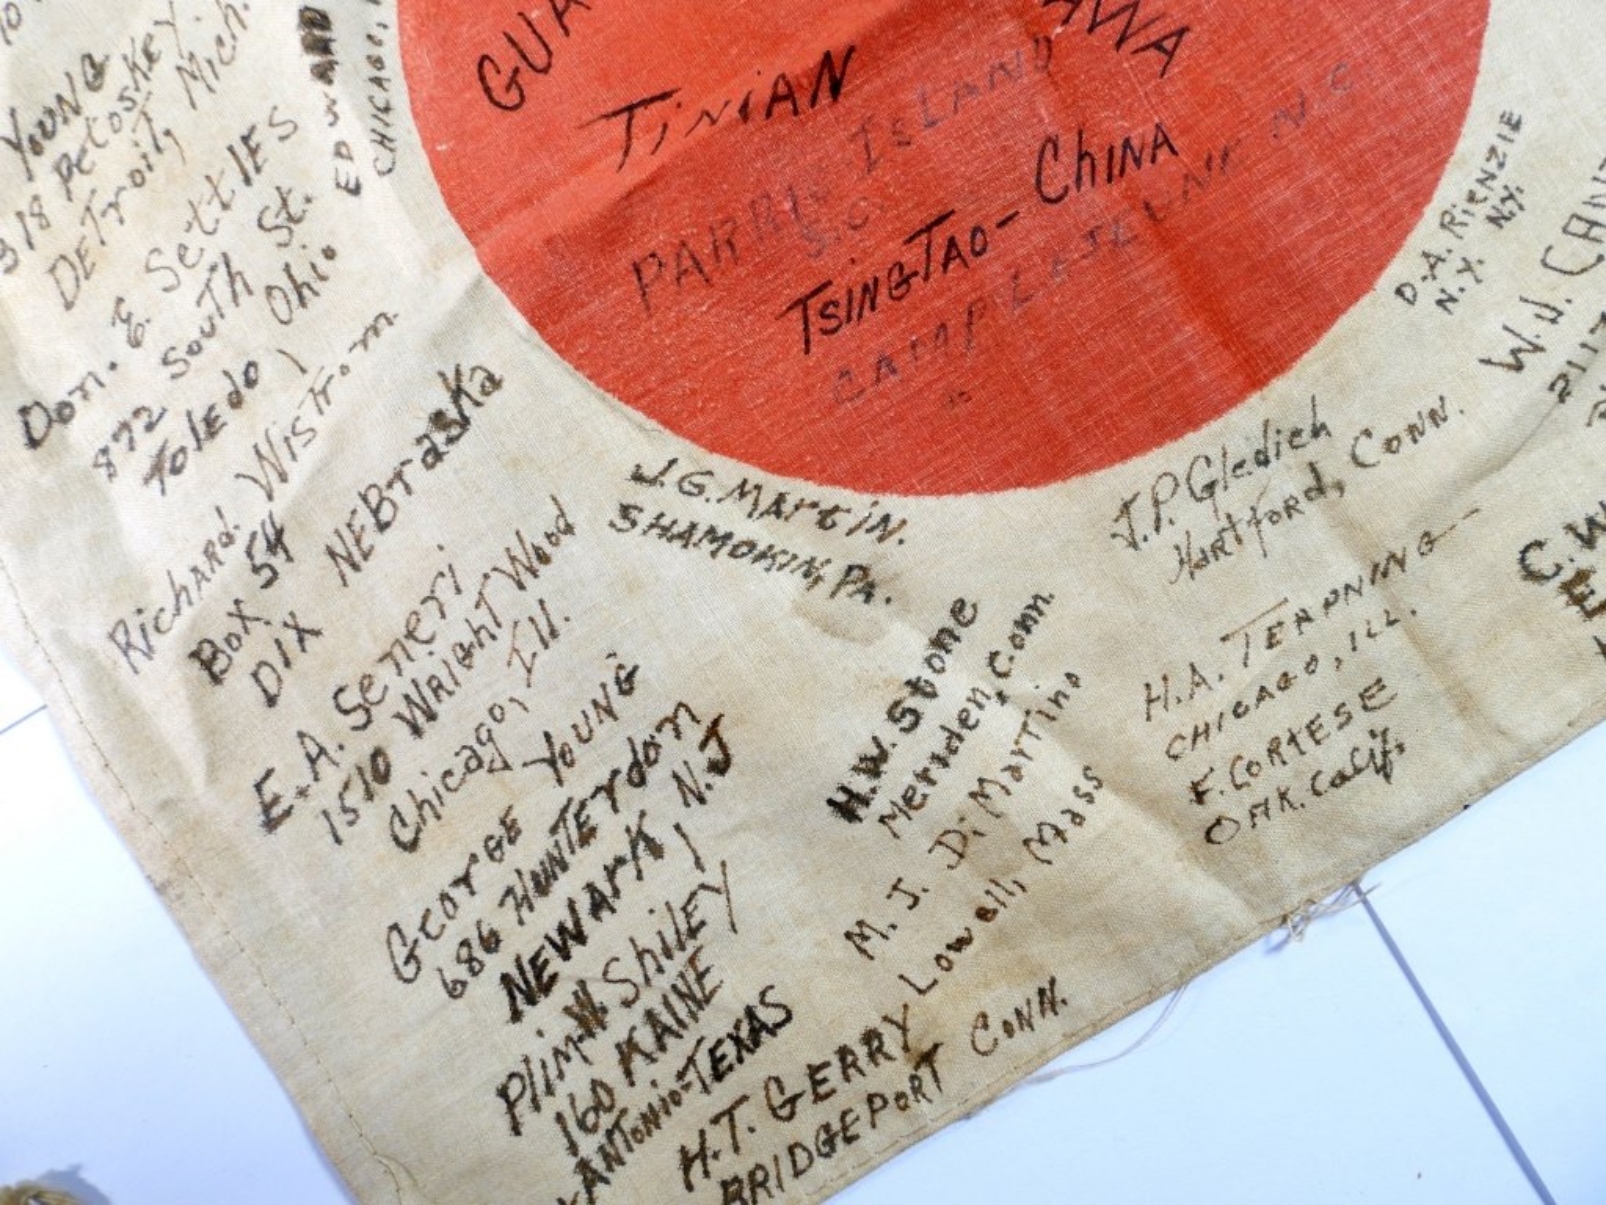 GUA
AWA
TiNiAN
PARRIS ISLAND
S.C.
TSINGTAO - ChiNA
CAMP LEJEUNE N.C.
YOUNG
318 PEtosKEY
DETroiT, Mich.
EDWARD
CHICAGO,
Don. E. SettlES
872 SouTh St.
TolEdo, Ohio
RichARd. Wistrom.
Box 54
DIX NEBrasKa
E.A. Seneri
1510 WRIGHT Wood
Chicago, Ill.
GEorGE YOUNG
686 HUNTErdon
NEWArK, N.J
Plim.W. ShilEY
160 KAINE
ANTonio-TEXAS
H.T. GERRY
BRIDGEPORT CONN.
J.G. MArtiN.
SHAMOKIN, PA.
H.W. Stone
Meriden, Conn.
M. J. DiMartino
Lowell, Mass
J.P. Gledich
HartFord, CONN.
H.A. TERPNING
CHICAGO, ILL.
F. CORTESE
OAK. Calif.
D.A. RiENZIE
N.Y. N.Y.
W.J.
2117
C.W